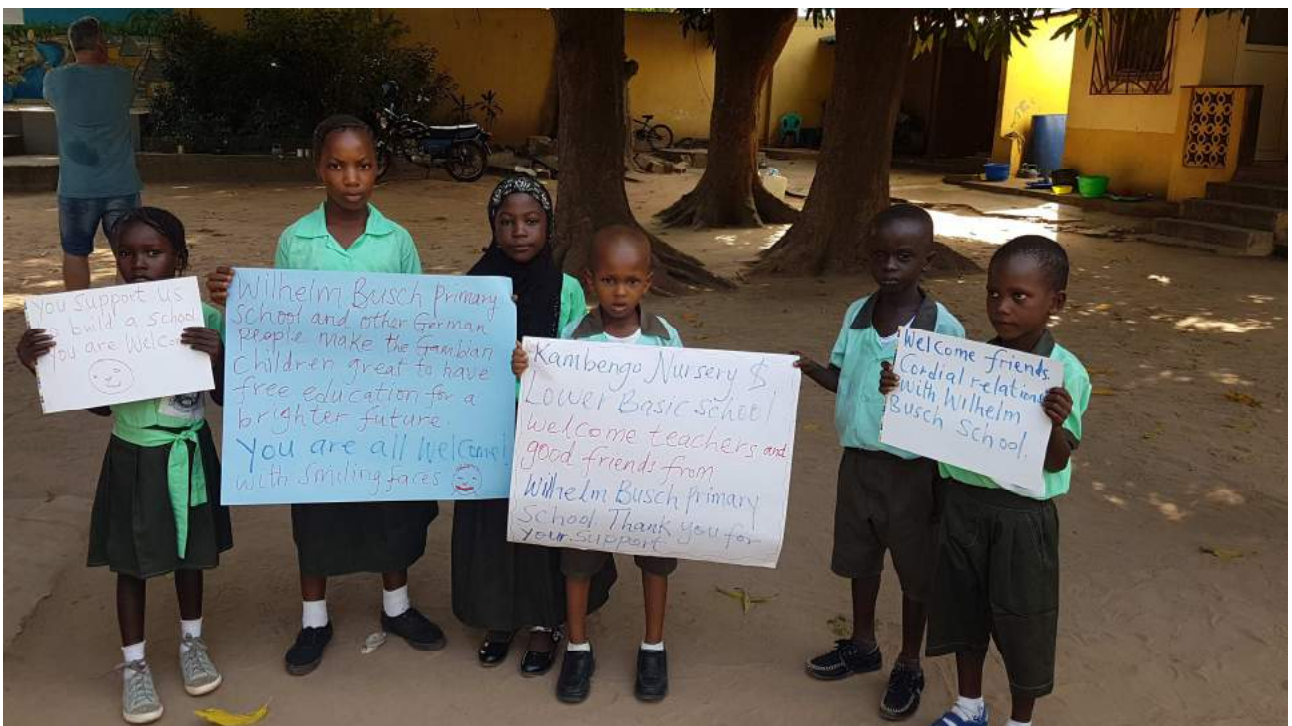 You support us
to build a school
You are Welcome
Wilhelm Busch primary
School and other German
people make the Gambian
Children great to have
free education for a
brighter future.
You are all Welcome!
with smiling faces
Kambengo Nursery $
Lower Basic school
welcome teachers and
good friends from
Wilhelm Busch primary
school. Thank you for
your support
Welcome friends.
Cordial relations
with Wilhelm
Busch School.